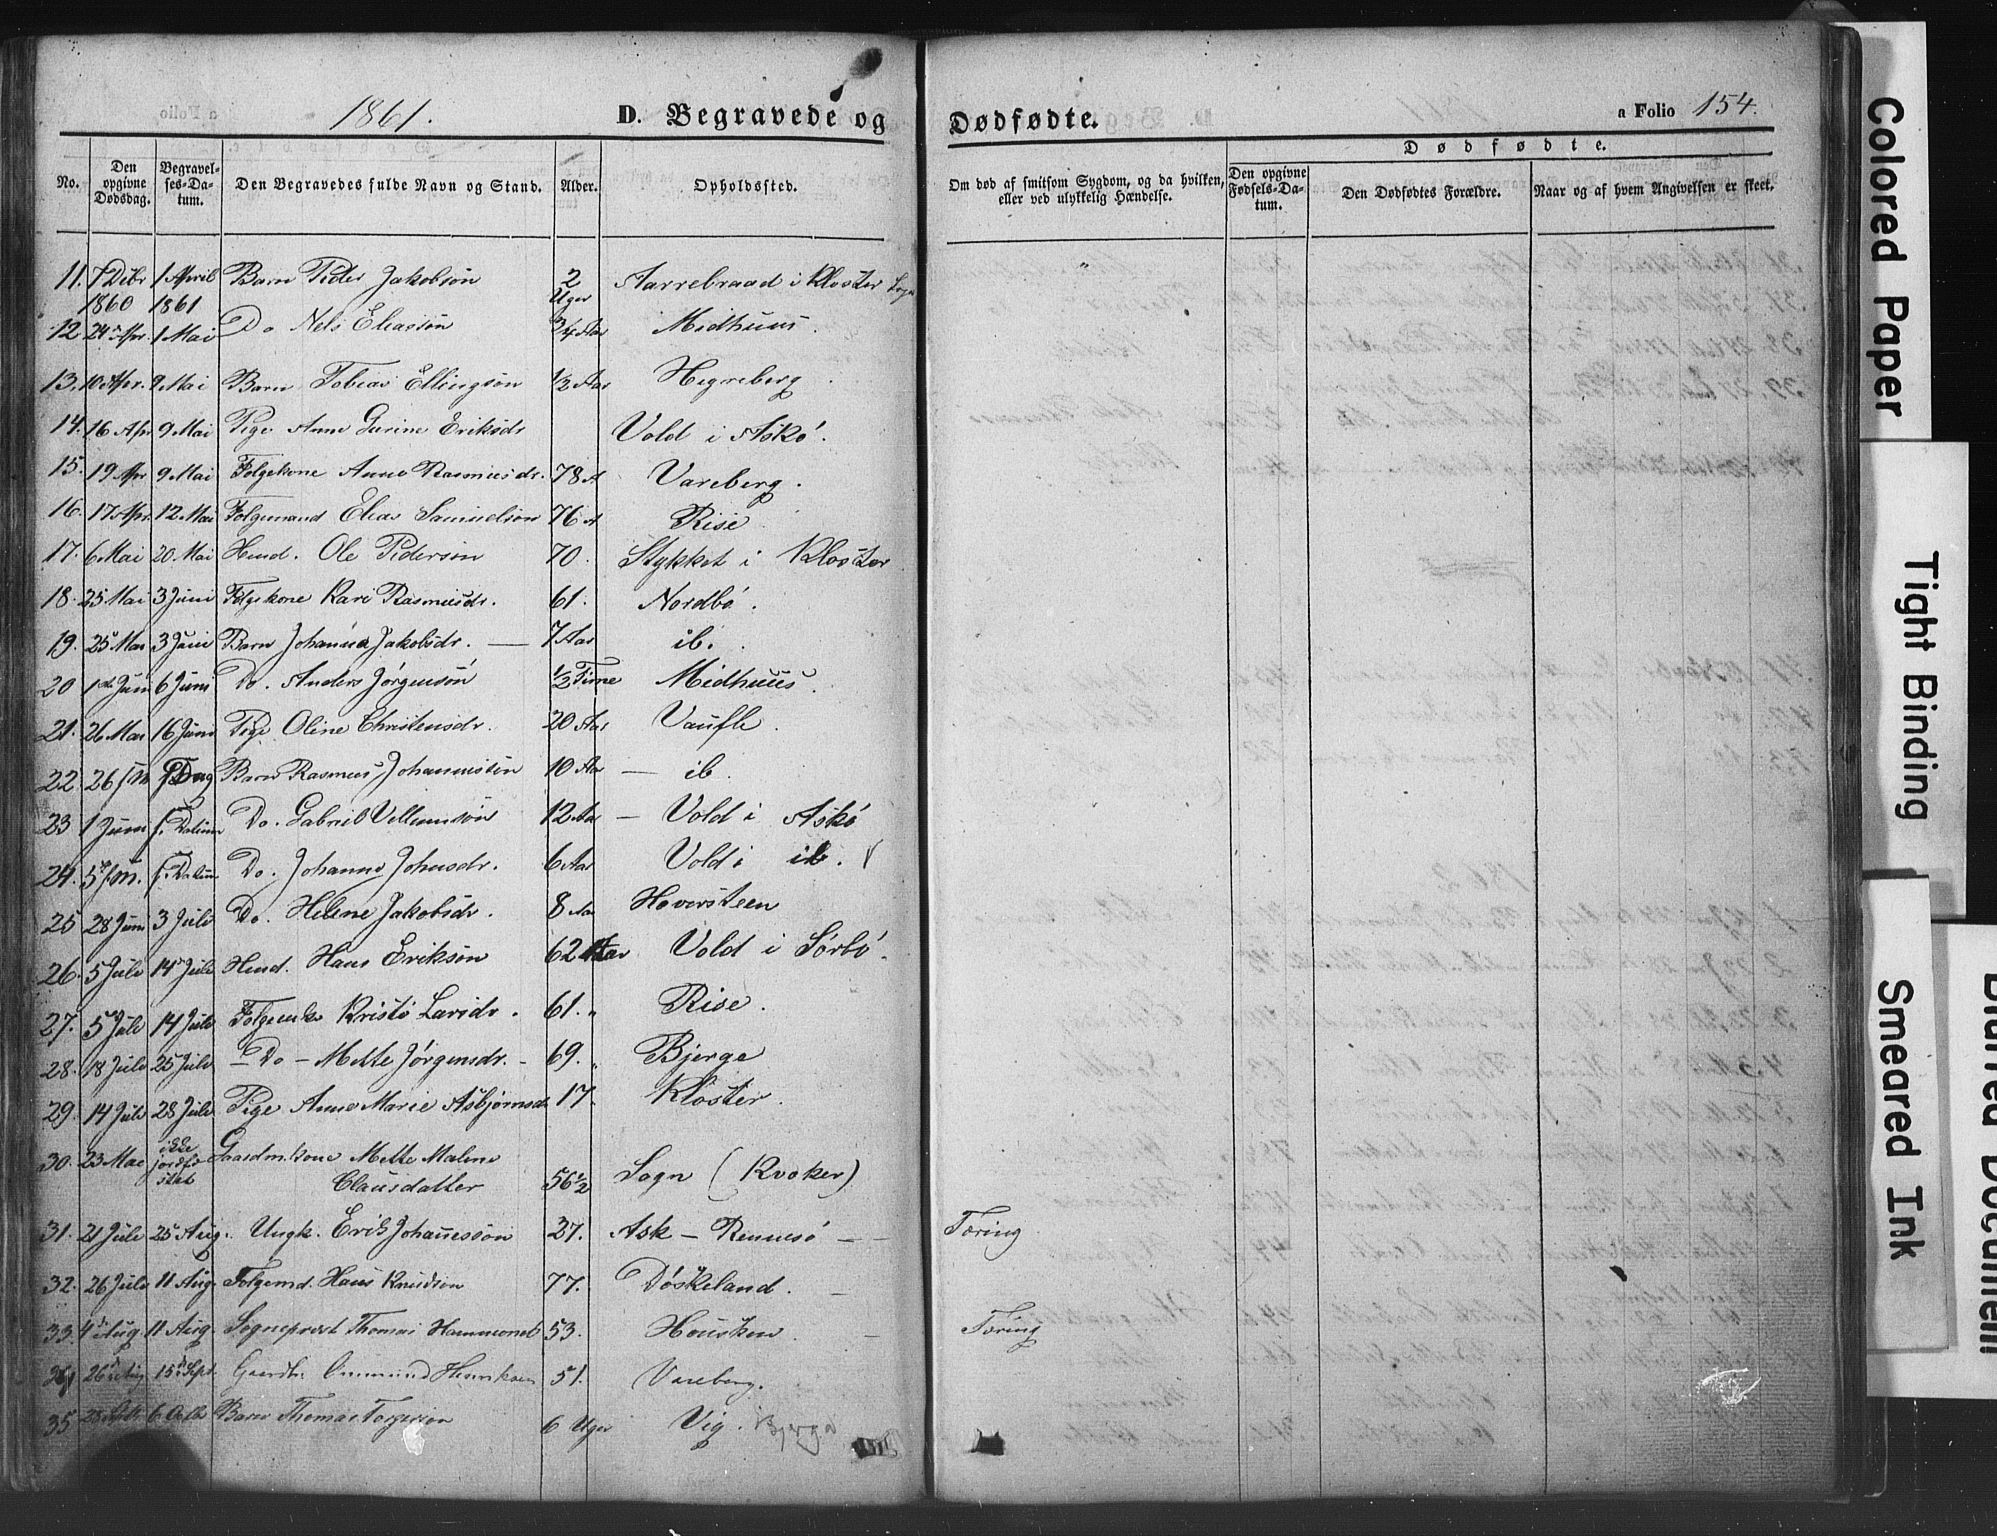 1861.
D. Begravede og
Dødfødte.
a Folio 154.
No.
Den opgivne Dødsdag.
Begravelses-Datum.
Den Begravedes fulde Navn og Stand.
Alder.
Opholdssted.
Om død af smitsom Sygdom, og da hvilken, eller ved ulykkelig Hændelse.
Dødfødte.
Den opgivne Fødsels-Datum.
Den Dødfødtes Forældre.
Naar og af hvem Angivelsen er skeet.
11. 7 Debr 1860 1 April 1861 Barn Peder Jakobsøn 2 Uger Aarrebraad i Kloster Sogn
12 24 Apr. 1 Mai Do Nels Eliasøn 3/4 Aar Midhuus.
13. 10 Apr. 9 Mai Barn Tobias Ellingsøn 1/2 Aar Hegreberg
14. 16 Apr 9 Mai Pige Anne Gurine Eriksdr Vold i Askø.
15. 19 Apr 9 Mai Folgekone Anna Rasmusdr. 78 A Vareberg.
16. 17 Apr. 12 Mai Folgemand Elias Samuelsøn 76 A Rise
17. 6 Mai 20 Mai Huusmd. Ole Pedersøn 70. Stykket i Kloster
18. 25 Mai 3 Juni Folgekone Kari Rasmusdr. 61. Nordbø.
19. 25 Mai 3 Juni Barn Johanna Jakobsdr. — 7 Aar ib.
20 1ste Juni 6 Juni Do. Anders Jørgensøn 1/2 Time Midhuus.
21. 26 Mai 16 Juni Pige Oline Christensdr. 20 Aar Vaufle.
22. 26 f. M. f. Dag Barn Rasmus Johannesøn 10 Aar — ib.
23 1 Juni f. Datum Do. Gabriel Vellumsøn 12 Aar — Vold i Askø
24. 5 f. M. f. Datum Do. Johanne Johnsdr. 6 Aar Vold i ib. V
25 28 Juni 3 Juli Do. Helene Jakobsdr. 8 Aar Hoversteen
26. 5 Juli 14 Juli Huusmd. Hans Eriksøn 62 Aar Vold i Sørbø.
27. 5 Juli 14 Juli Folgemk Kristi Larsdr. 61. " Rise.
28. 18 Juli 25 Juli — Do — Mette Jørgensdr. — 69. " Bjerge
29. 14 Juli 28 Juli Pige Anne Marie Asbjørnsd 17. Kloster.
30. 23 Mai ikke jordfæstet Gaardmkone Mette Malene
Clausdatter 56 1/2 Sogn (Kvæker)
31. 21 Juli 25 Aug. Ungk. Erik Johannessøn 27. Ask — Rennesø — — Tæring
32. 26 Juli 11 Aug. Folgemd. Hans Knudsen 77. Døskeland. —
33. 4 Aug 11 Aug. Sogneprest Thomas Hammond 53. Housken. — Tæring
34 26 Aug 15 Sept. Gaardbr. Ommund Henriksen 51. Vareberg.
35. 28 Sept 6 Octb Barn Thomas Torgersøn 6 Uger Vig. Bjerga
Colored Paper
Tight Binding
Smeared Ink
Blurred Document